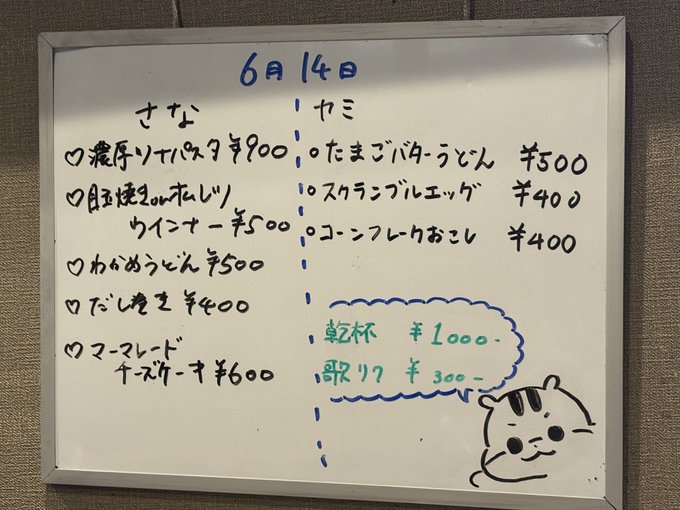 6月14日
さな
♡濃厚ツナパスタ ¥900
♡目玉焼きonホムレツ
ウインナー ¥500
♡わかめうどん ¥500
♡だし巻き ¥400
♡マーマレード
チーズケーキ ¥600
ヤミ
○たまごバターうどん ¥500
○スクランブルエッグ ¥400
○コーンフレークおこし ¥400
乾杯 ¥1000-
歌リク ¥300-